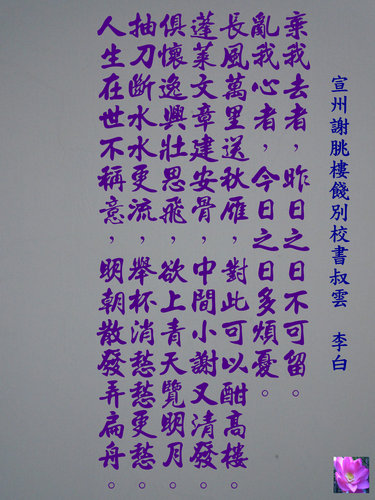 宣州謝朓樓餞別校書叔雲 李白
棄我去者，昨日之日不可留。
亂我心者，今日之日多煩憂。
長風萬里送秋雁，對此可以酣高樓。
蓬萊文章建安骨，中間小謝又清發。
俱懷逸興壯思飛，欲上青天覽明月。
抽刀斷水水更流，舉杯消愁愁更愁。
人生在世不稱意，明朝散發弄扁舟。